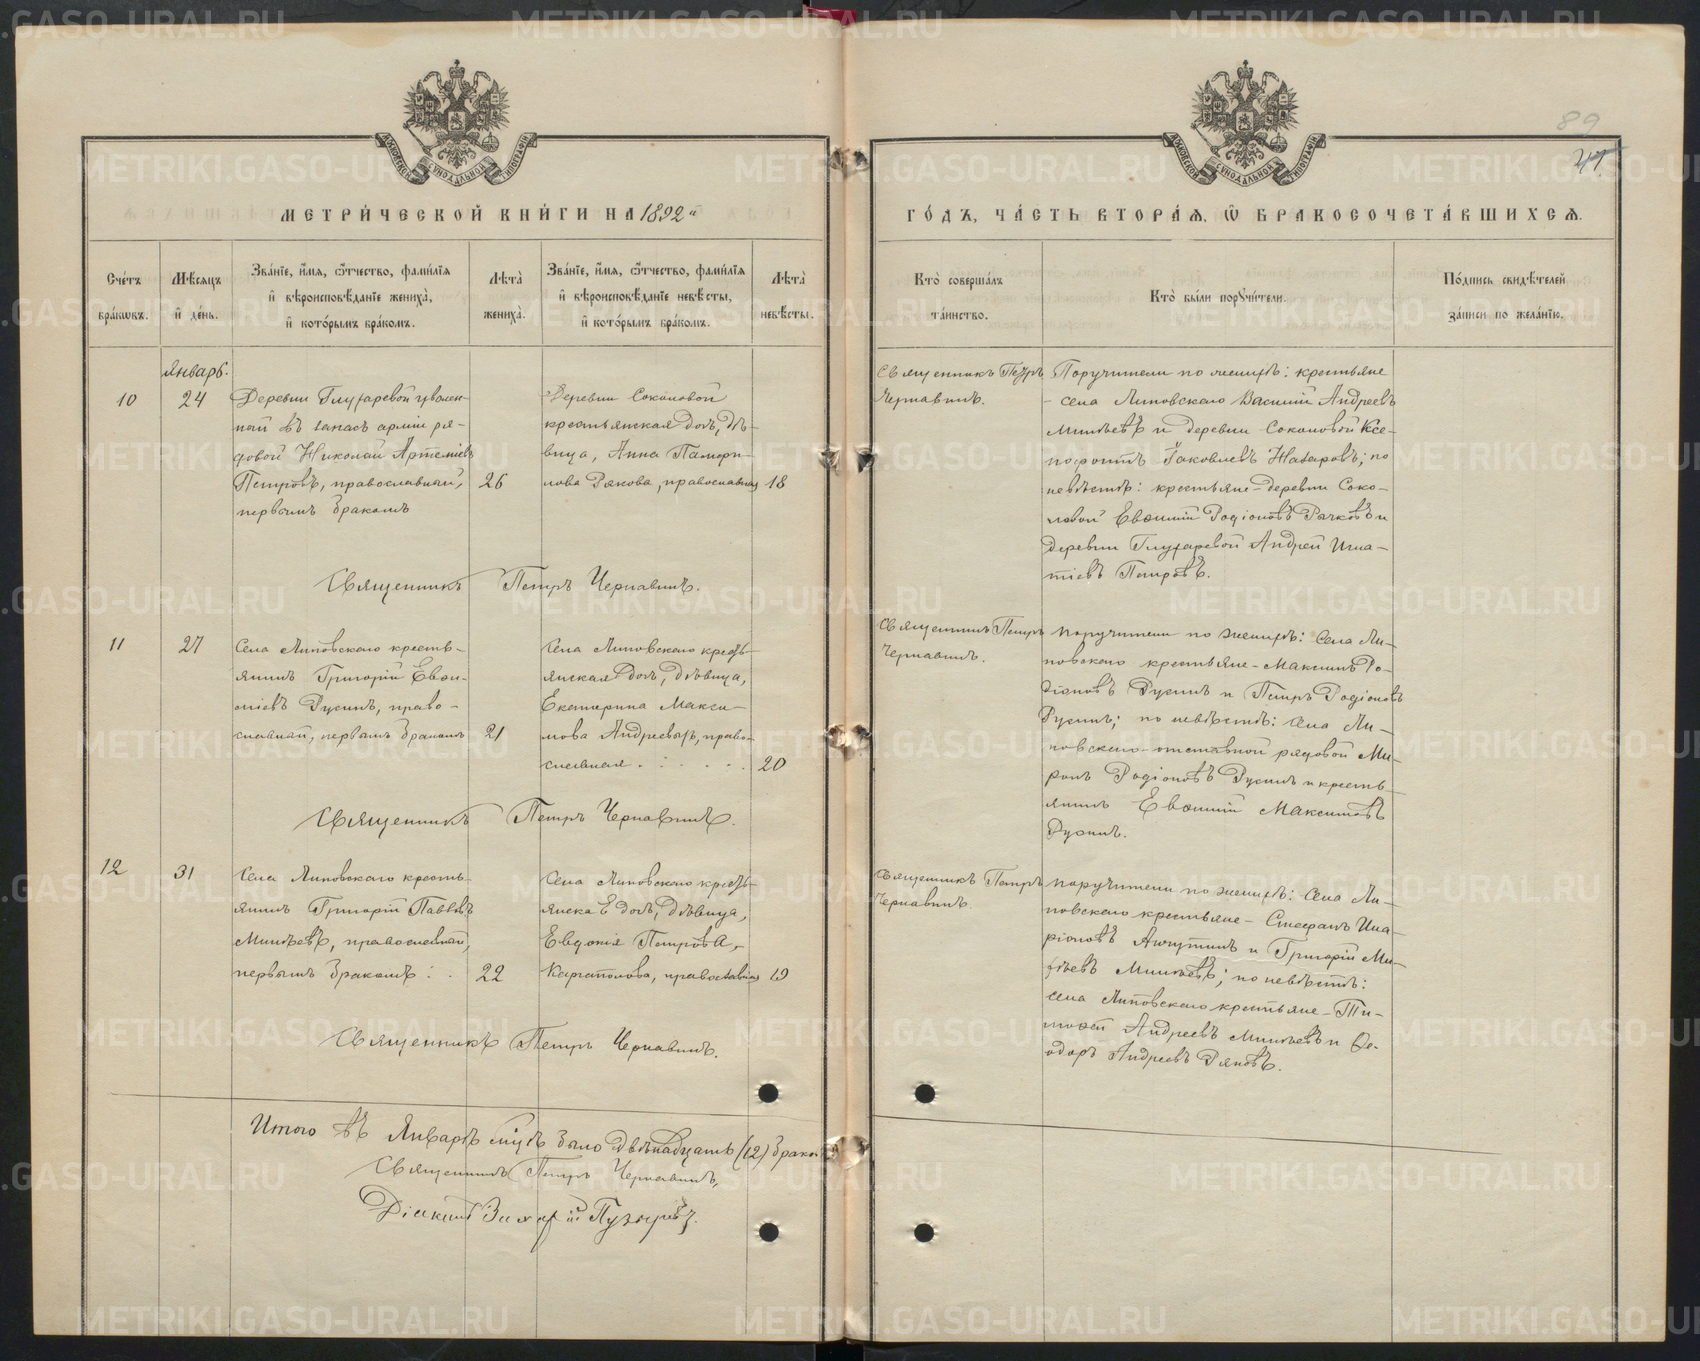 МЕТРИ́ЧЕСКОЙ КНИ́ГИ НА 1892 й
ГО́ДЪ, ЧА́СТЬ ВТОРА́Ѧ, Ѡ҆ БРАКОСОЧЕТА́ВШИХСѦ.
89
Сче́тъ бра́кѡвъ.
Мѣ́сяцъ и҆ де́нь.
Зва́нїе, и҆́мя, ѻ҆́тчество, фами́лїя
и҆ вѣроисповѣ́данїе жениха̀,
и҆ кото́рымъ бра́комъ.
Лѣта̀ жениха̀.
Зва́нїе, и҆́мя, ѻ҆́тчество, фами́лїя
и҆ вѣроисповѣ́данїе невѣ́сты,
и҆ кото́рымъ бра́комъ.
Лѣта̀ невѣ́сты.
Кто̀ соверша́лъ та́инство.
Кто̀ бы́ли порꙋчи́тели.
По́дпись свидѣ́телей за́писи по жела́нїю.
Январь.
10
24
Деревни Глухаревой уволен-
ный въ запасъ арміи ря-
довой Николай Артеміевъ
Петровъ, православный,
первымъ бракомъ
26
Деревни Соколовой
крестьянская дочь, дѣ-
вица, Анна
православная
18
Священникъ Петръ
Чернавинъ.
Поручители по женихѣ: крестьяне
- села Липовскаго Василій Андреевъ
Минѣевъ и деревни Соколовой Ксе-
нофонтъ Іаковлевъ Назаровъ; по
невѣстѣ: крестьяне - деревни Соко-
ловой Евѳимій Родіоновъ Рычковъ и
деревни Глухаревой Андрей Игна-
тіевъ Петровъ.
Священникъ Петръ Чернавинъ.
11
27
Села Липовскаго кресть-
янинъ Григорій Евѳи-
міевъ Русинъ, право-
славный, первымъ бракомъ
21
Села Липовскаго кресть-
янская дочь, дѣвица,
Екатерина Макси-
мова Андреевыхъ, право-
славная . . . . . .
20
Священникъ Петръ
Чернавинъ.
Поручители по женихѣ: Села Ли-
повскаго крестьяне - Максимъ Ро-
діоновъ Русинъ и Петръ Родіоновъ
Русинъ; по невѣстѣ: села Ли-
повскаго - отставной рядовой Ми-
ронъ Родіоновъ Русинъ и кресть-
янинъ Евѳимій Максимовъ
Русинъ.
Священникъ Петръ Чернавинъ.
12
31
Села Липовскаго кресть-
янинъ Григорій Павловъ
Минѣевъ, православный,
первымъ бракомъ . .
22
Села Липовскаго кресть-
янская дочь, дѣвица,
Евдокія Петрова,
православная
19
Священникъ Петръ
Чернавинъ.
Поручители по женихѣ: Села Ли-
повскаго крестьяне - Стефанъ Ила-
ріоновъ и Григорій Ми-
Минѣевъ; по невѣстѣ:
села Липовскаго крестьяне - Ти-
моѳей Андреевъ Минѣевъ и Ѳе-
одоръ Андреевъ
Священникъ Петръ Чернавинъ.
Итого въ Январѣ мцѣ было двѣнадцать (12) браковъ
Священникъ Петръ Чернавинъ,
Діаконъ Пузыревъ.
METRIKI.GASO-URAL.RU